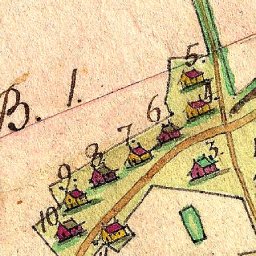 B. 1.
5.
4
6
7
8
9
10
3.